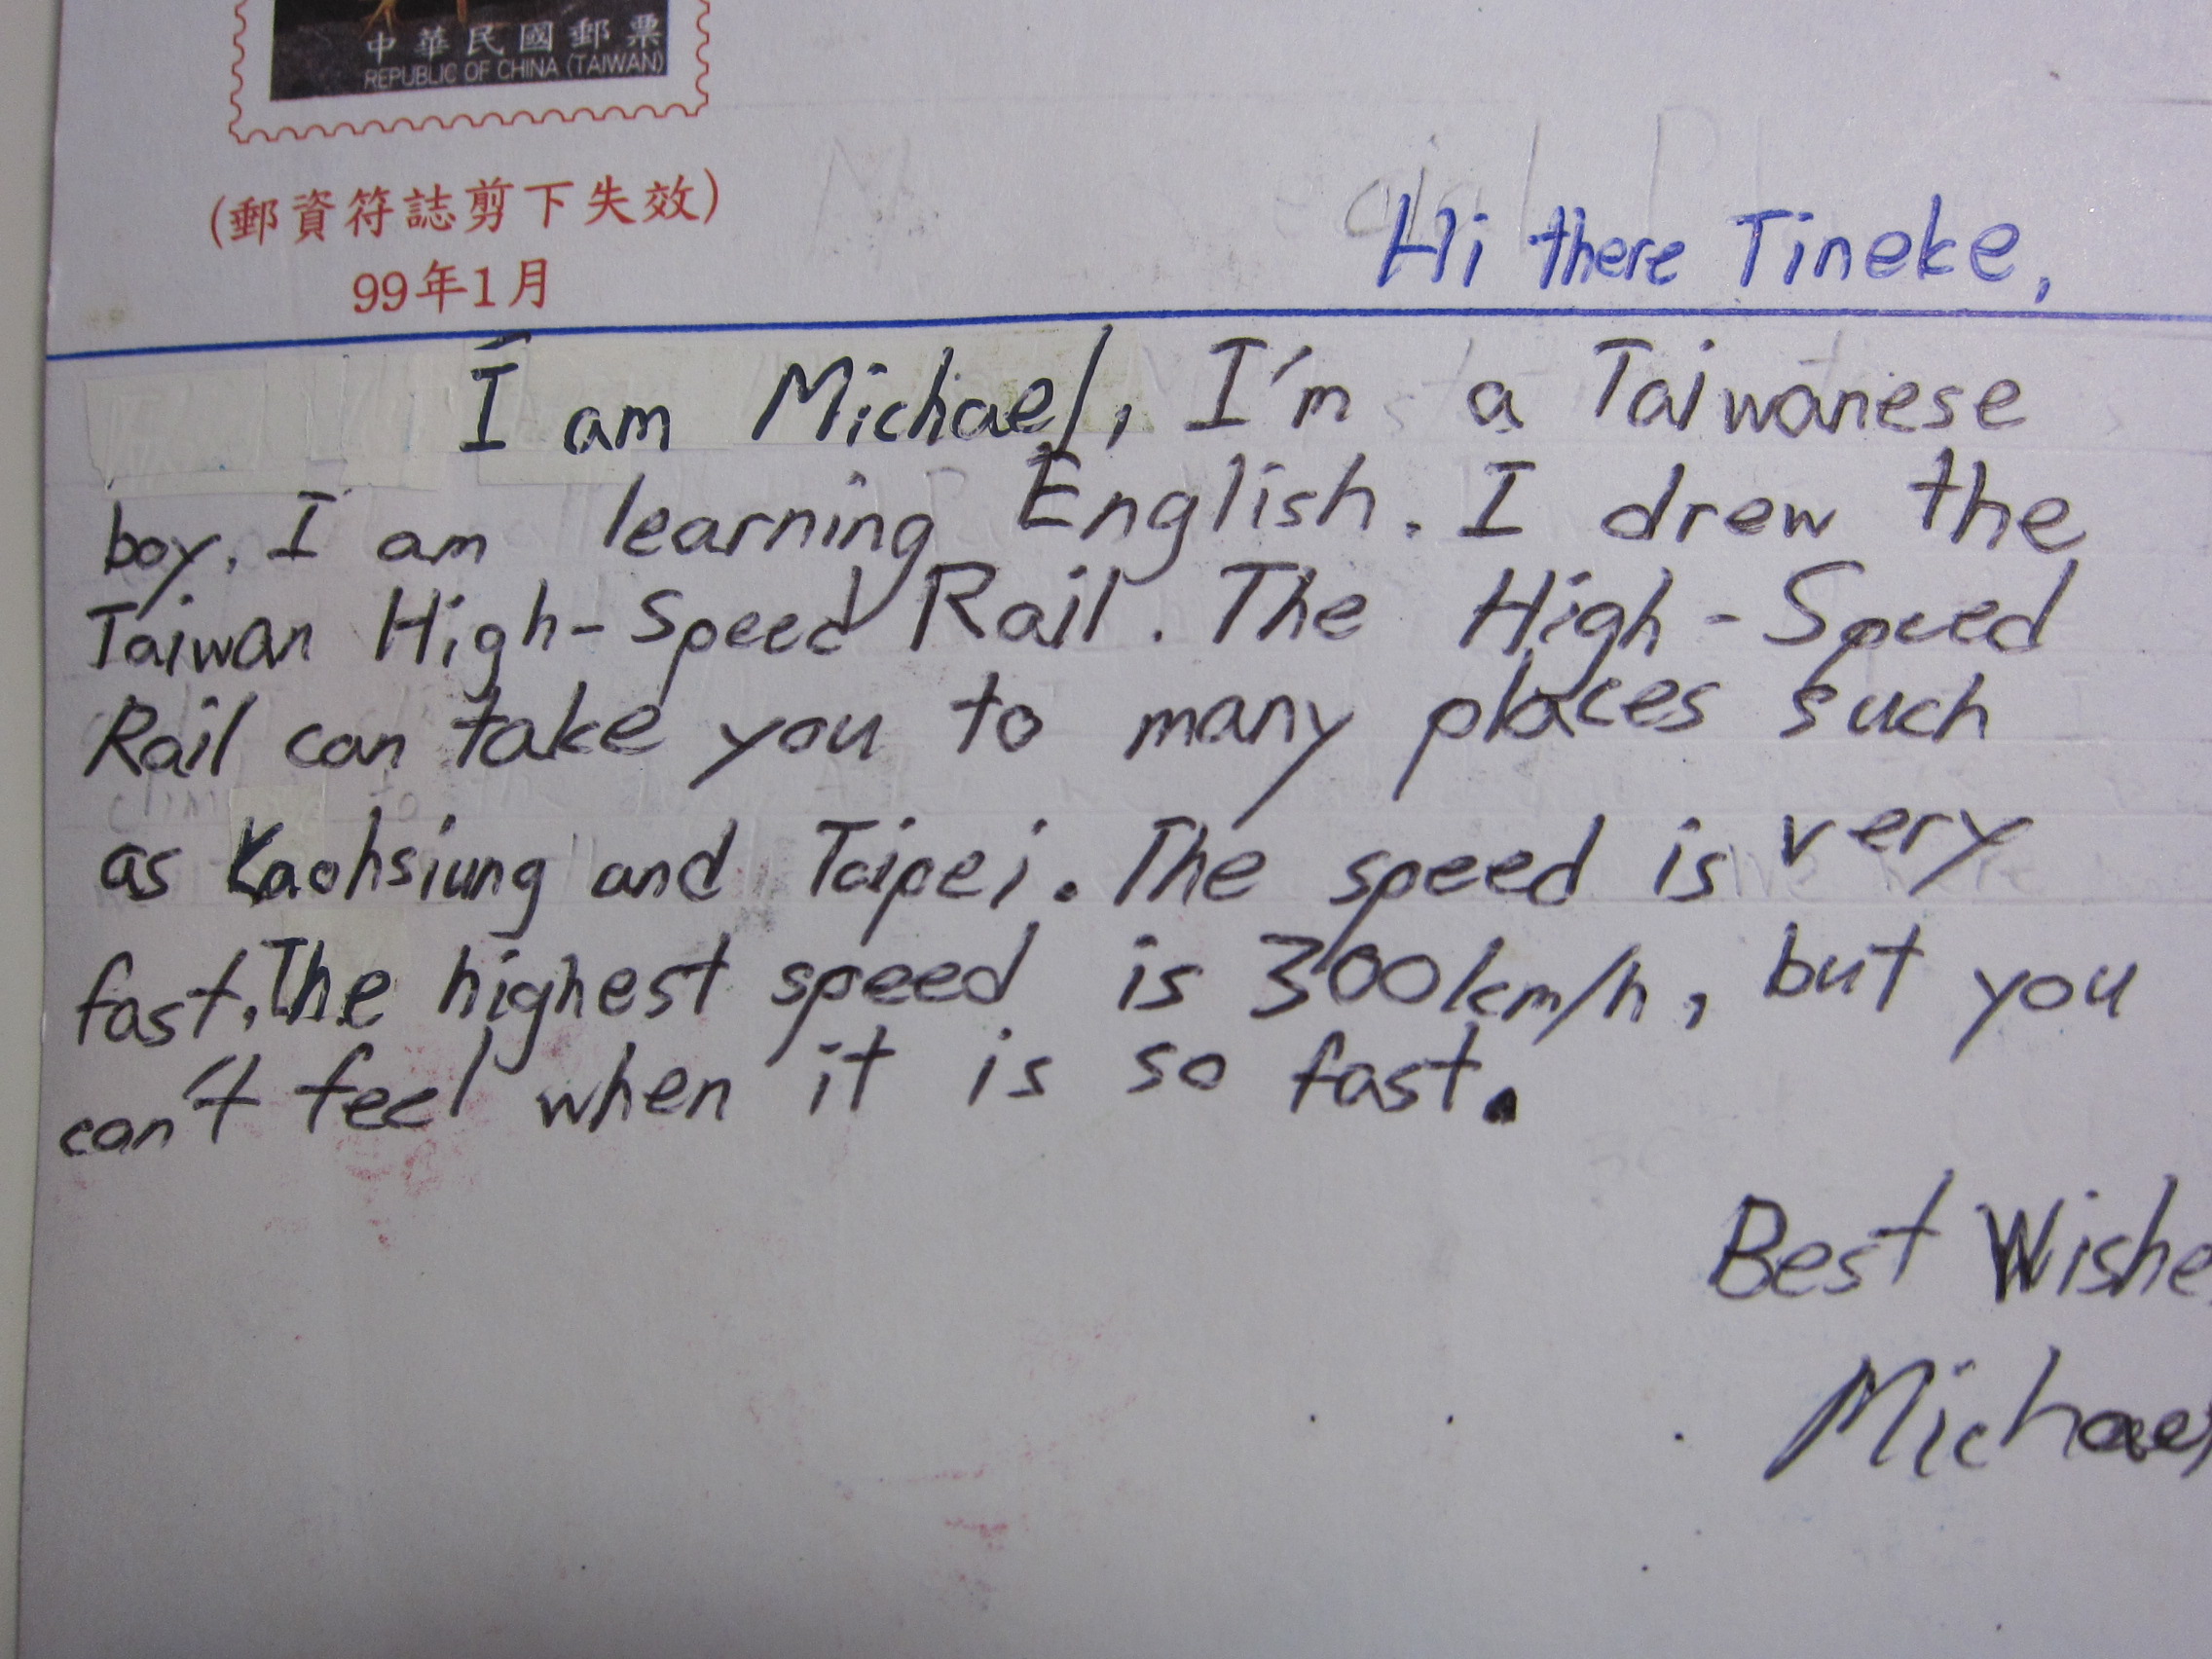 中華民國郵票
REPUBLIC OF CHINA (TAIWAN)
(郵資符誌剪下失效)
99年1月
Hi there Tineke,
I am Michael, I'm a Taiwanese
boy. I am learning English. I drew the
Taiwan High-Speed Rail. The High-Speed
Rail can take you to many places such
as Kaohsiung and Taipei. The speed is very
fast. The highest speed is 300km/h, but you
can't feel when it is so fast.
Best Wishe
Michael